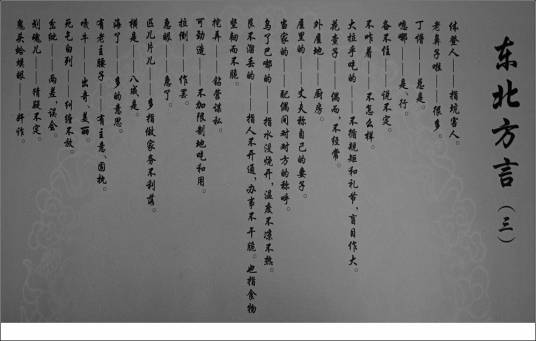 东北方言（三）
体登人——指坑害人。
老鼻子啦——很多。
丁攥——总是。
嗯哪——是、行。
备不住——说不定。
不咋着——不怎么样。
大拉乎吃的——不循规矩和礼节，盲目作大。
花查子——偶而，不经常。
外屋地——厨房。
屋里的——丈夫称自己的妻子。
当家的——配偶间对对方的称呼。
乌了巴嘟的——指水没烧开，温度不凉不热。
艮不溜丢的——指人不开通，办事不干脆。也指食物坚韧而不脆。
挖弄——钻营谋私。
可劲造——不加限制地吃和用。
拉倒——作罢。
急眼——急了。
匹儿片儿——多指做家务不利落。
横是——八成是。
海了——多的意思。
有老主腰子——有主意、固执。
啧牛——出奇、美丽。
死气白列——纠缠不放。
岔纰——两差、误会。
划魂儿——猜疑不定。
鬼头蛤蟆眼——奸诈。